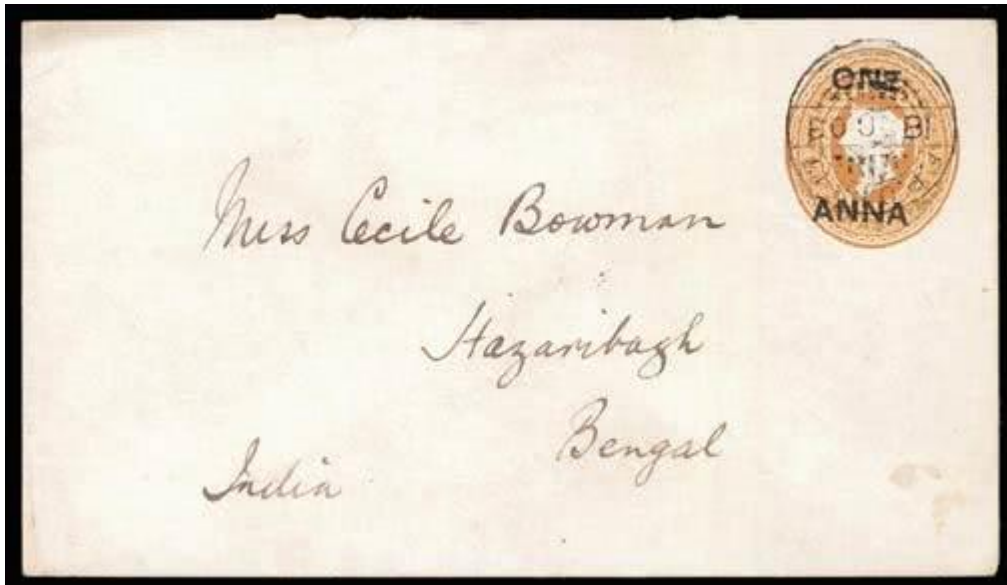 ONE
ANNA
Miss Cecile Bowman
Hazaribagh
Bengal
India